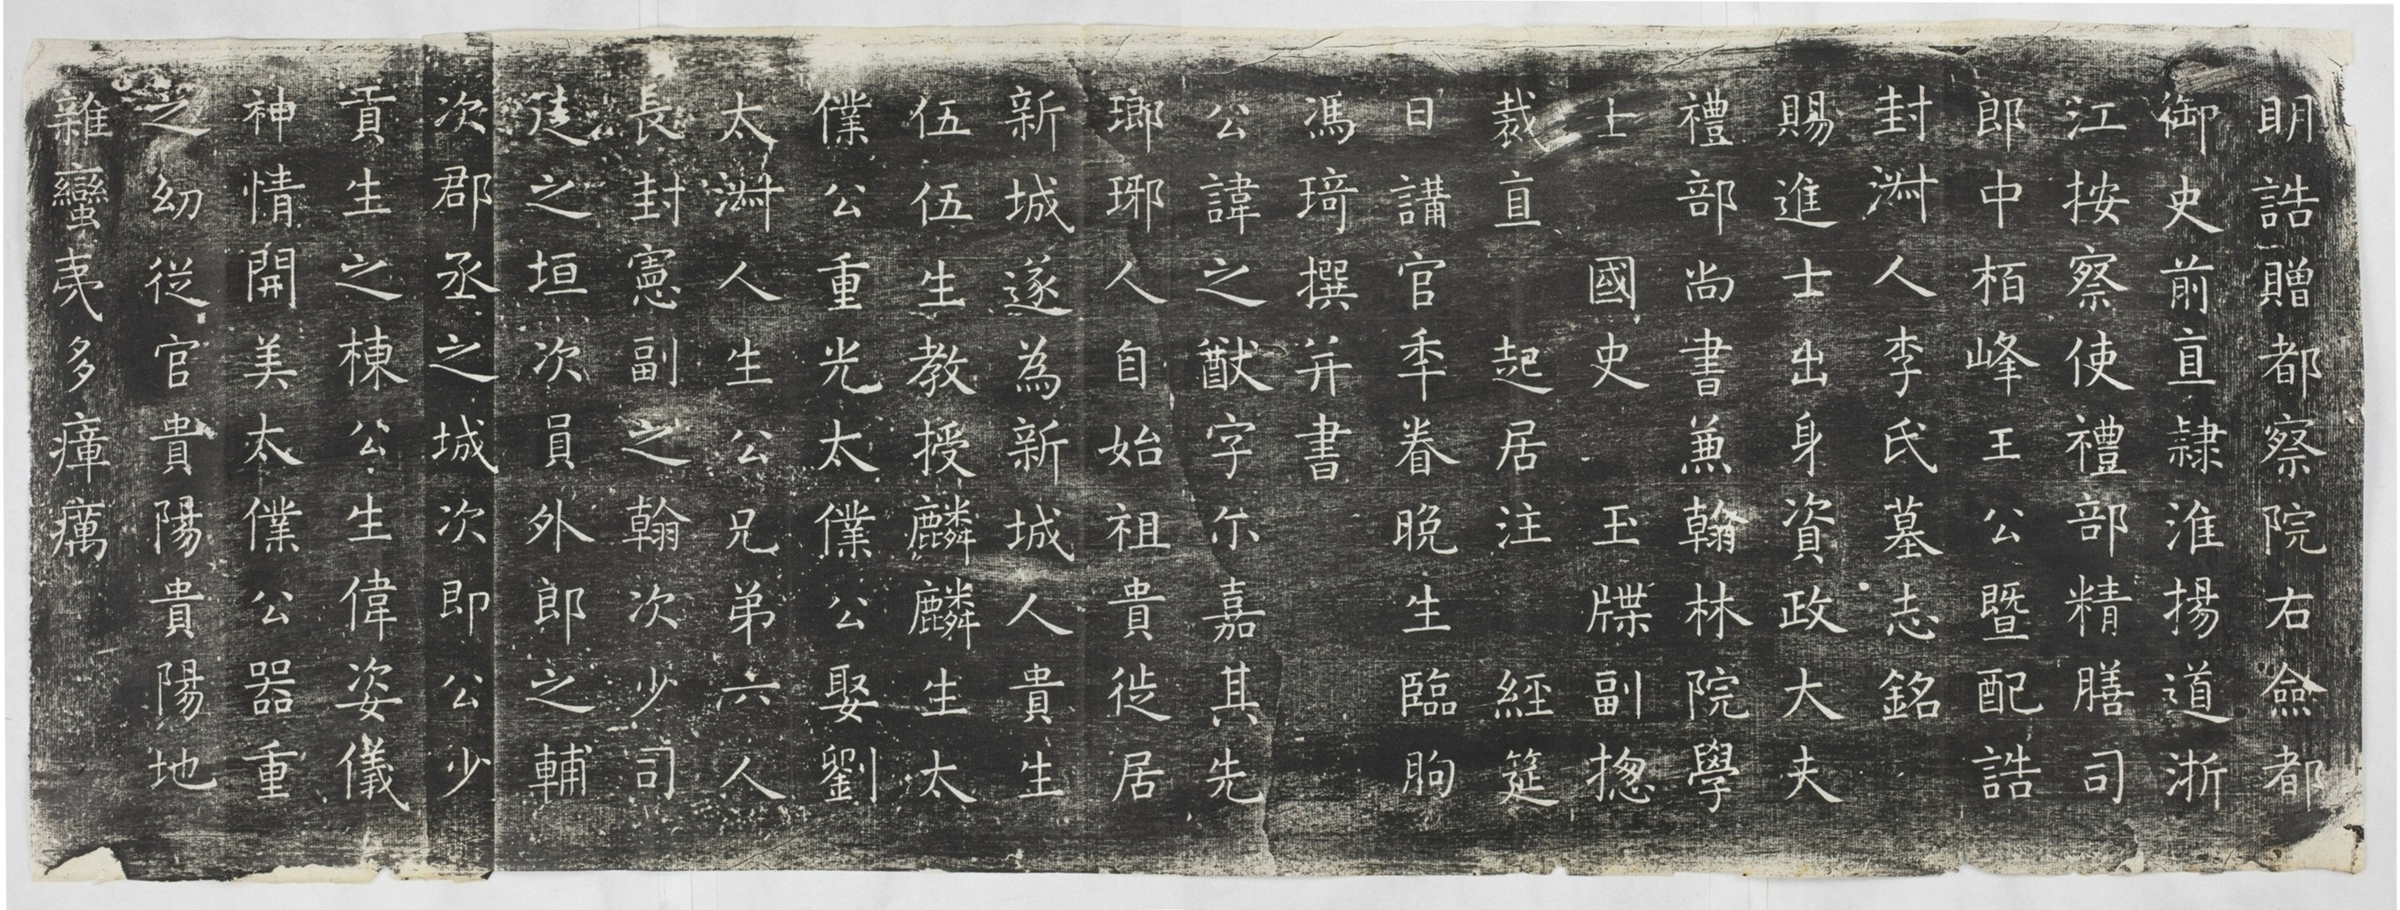 明誥贈都察院右僉都
御史前直隷淮揚道浙
江按察使禮部精膳司
郎中栢峰王公暨配誥
封淑人李氏墓志銘
賜進士出身資政大夫
禮部尚書兼翰林院學
士　國史　玉牒副揔
裁直　起居注　經筵
日講官年眷晚生臨朐
馮琦撰并書
公諱之猷字尓嘉其先
瑯琊人自始祖貴徙居
新城遂為新城人貴生
伍伍生教授麟麟生太
僕公重光太僕公娶劉
太淑人生公兄弟六人
長封憲副之翰次少司
徒之垣次員外郎之輔
次郡丞之城次即公少
貢生之棟公生偉姿儀
神情開美太僕公器重
之幼從官貴陽貴陽地
雜蠻夷多瘴癘